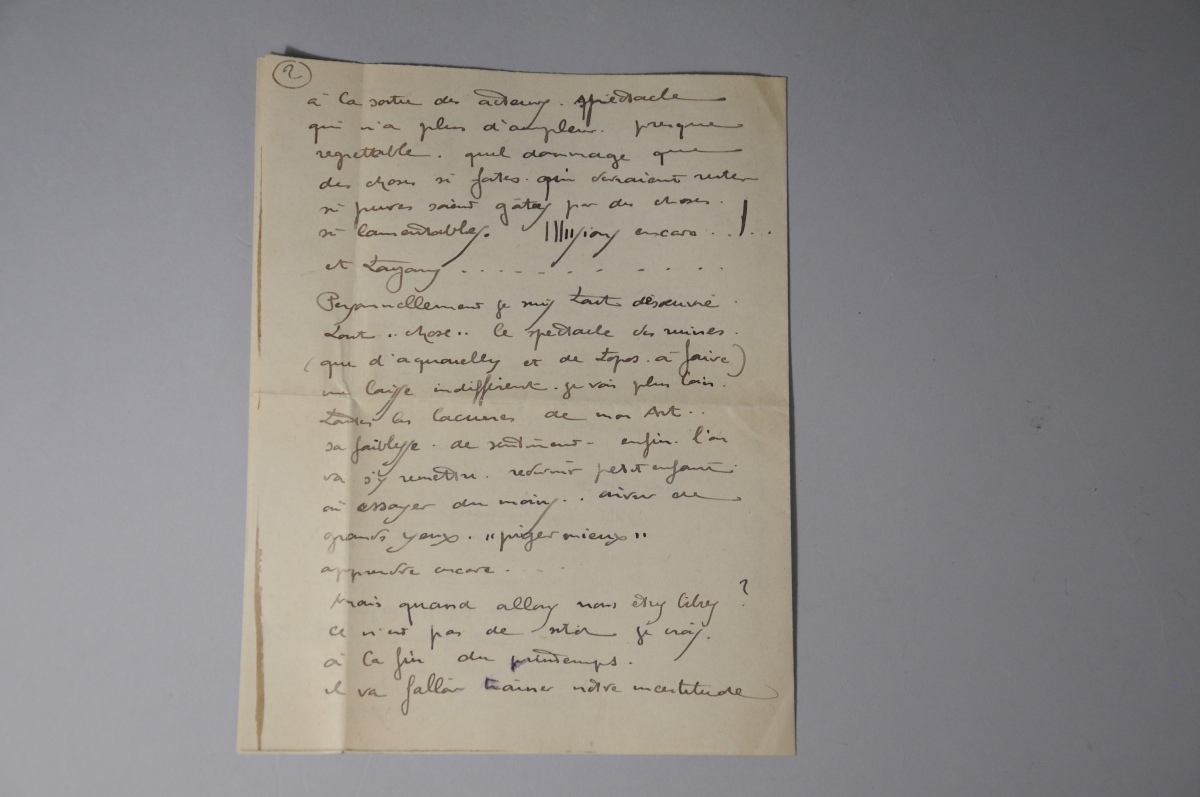 2
à la sortie des acteurs. spectacle
qui n'a plus d'ampleur. presque
regrettable. quel dommage que
des choses si fortes. qui devraient rester
si pures soient gâtés par des choses.
si lamentables. Illusions encore . . ! . .
et
Personnellement je suis tout désœuvré.
tout .. chose .. le spectacle des ruines.
(que d'aquarelles et de topos. à faire)
me laisse indifférent. je vois plus loin.
toutes les lacunes de mon Art . .
sa faiblesse. de sentiment - enfin. l'on
va s'y remettre. redevenir petit enfant.
ou essayer du moins . . ouvrir de
grands yeux. "piger mieux"
apprendre encore . . . .
Mais quand allons nous être libres ?
ce n'est pas de sitôt je crois.
à la fin du printemps.
il va falloir traîner nôtre incertitude